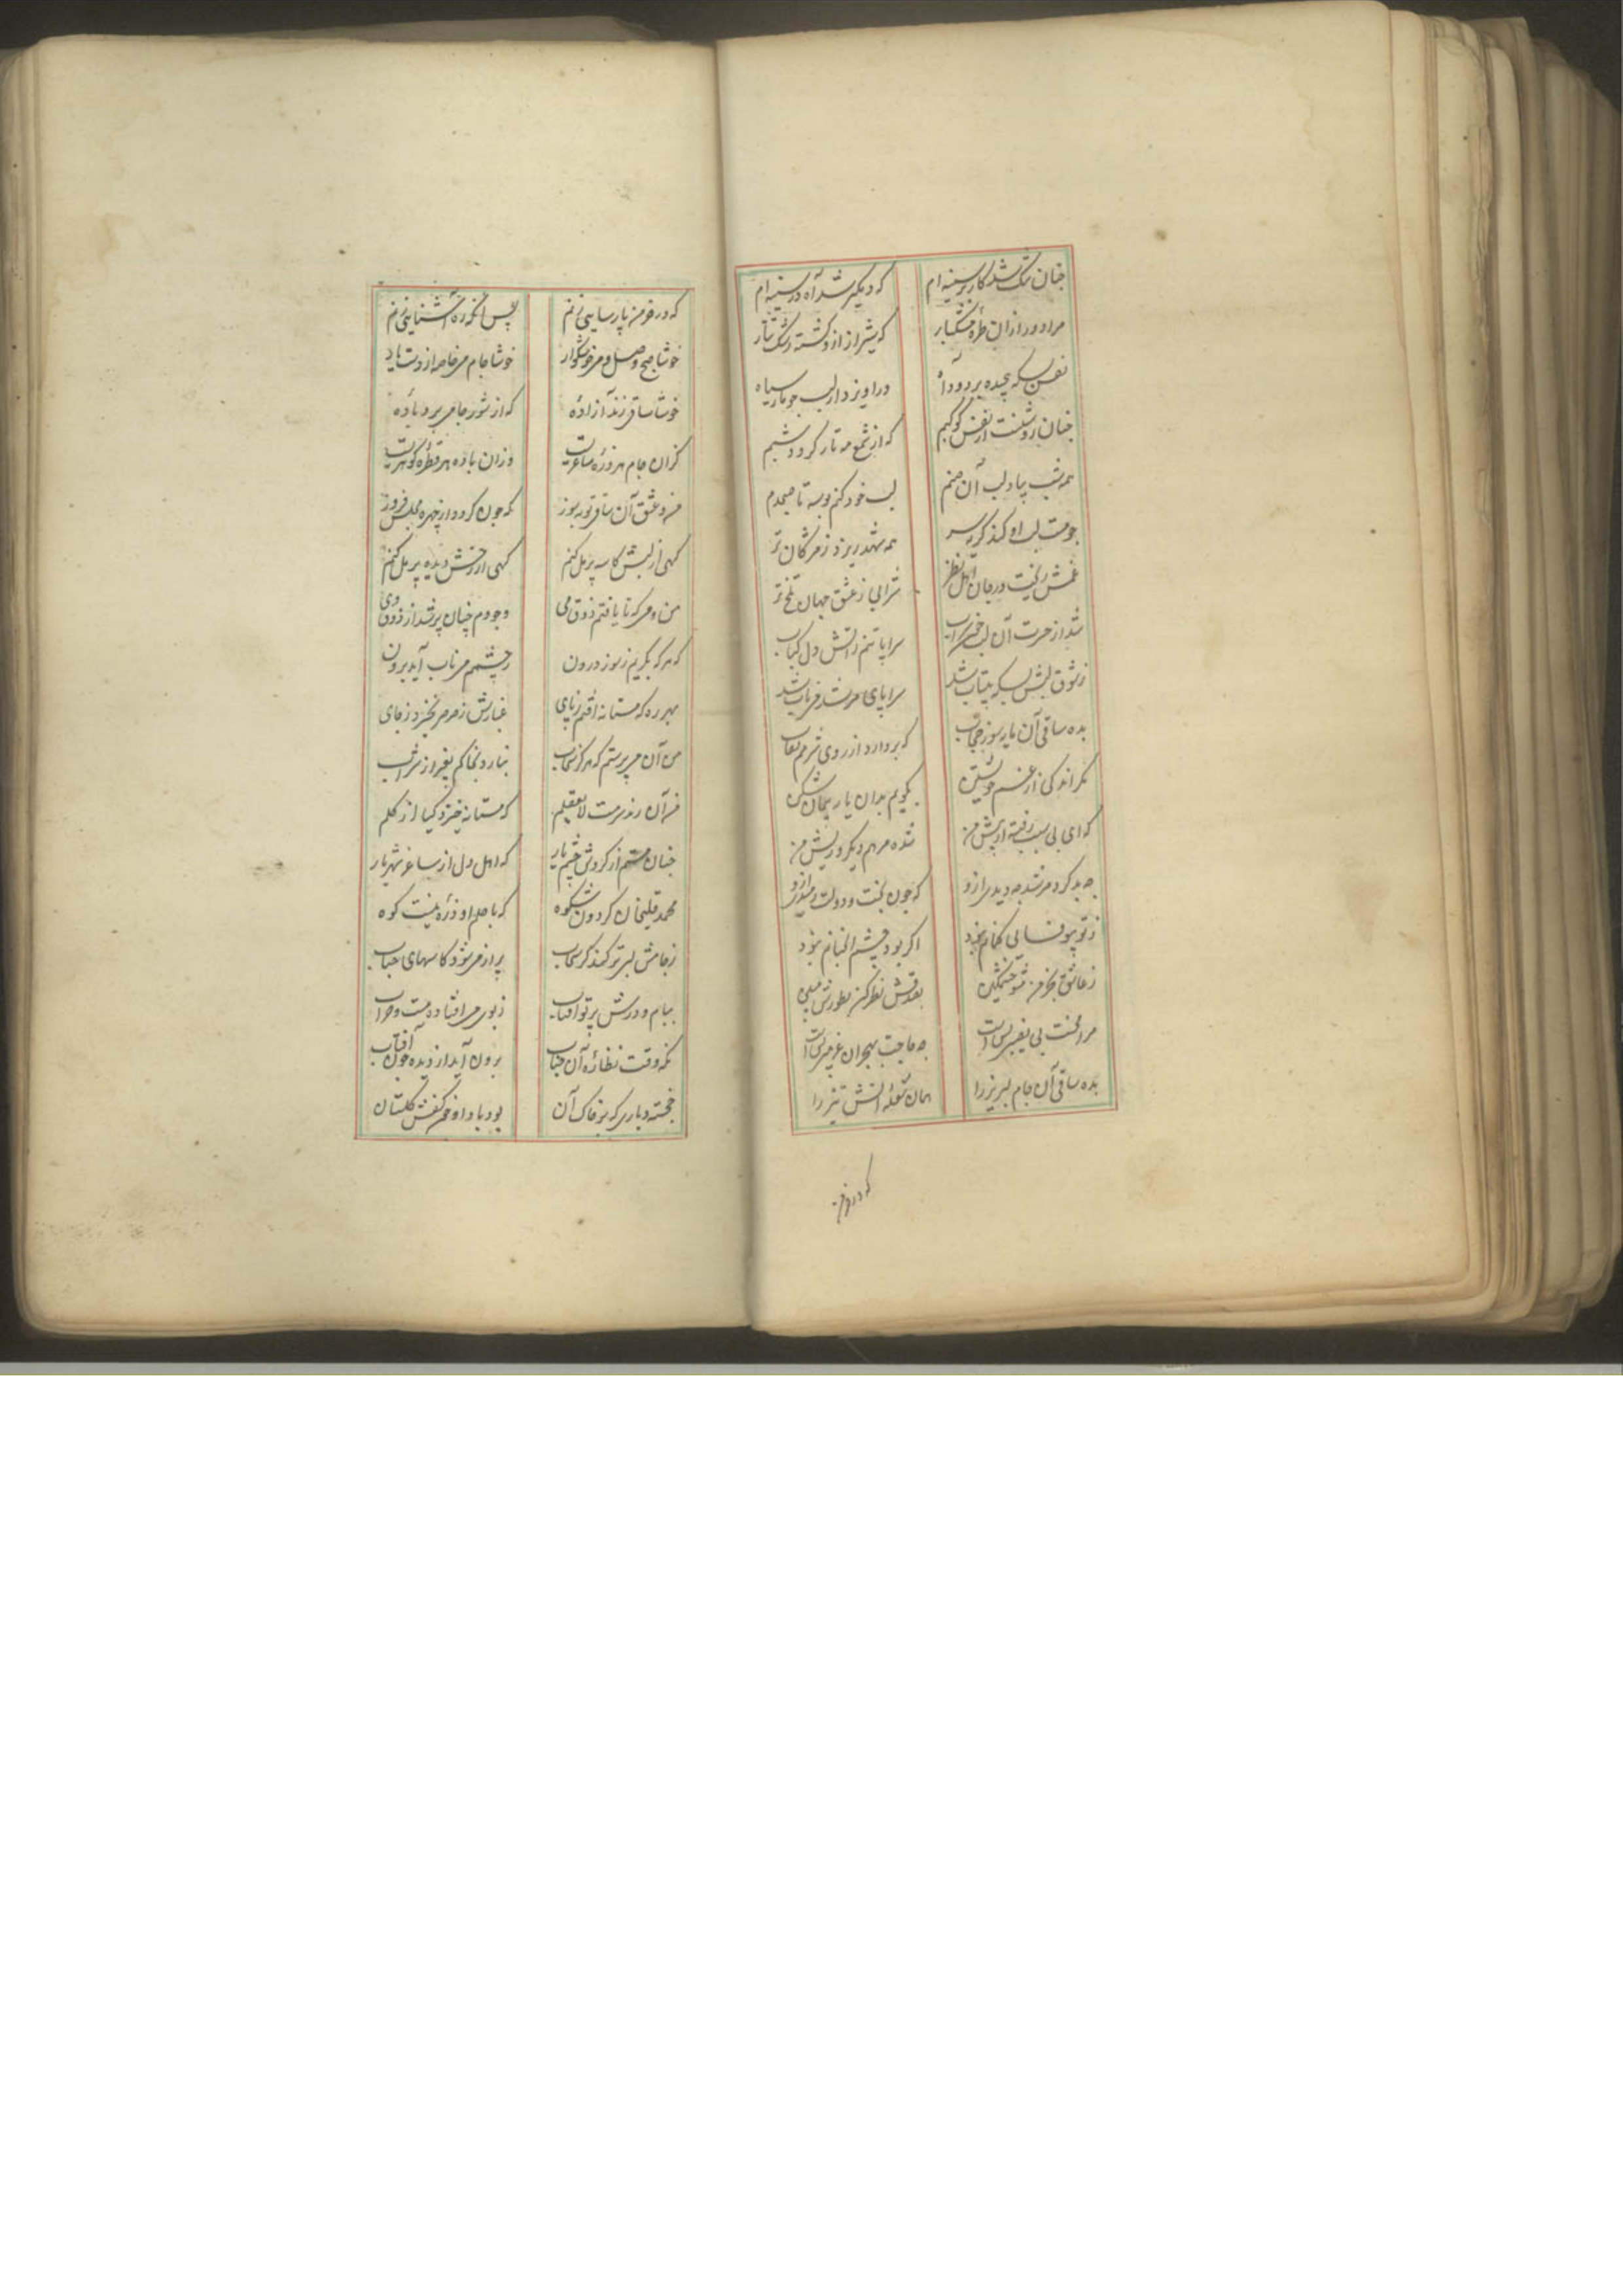 چنان تنک شد کار بر سینه ام که دیکر شد آه در سینه ام
مرا دور از ان طره مشکبار که شیراز ازو کشته رشک تتار
نفس بسکه پیچیده بر دود آه در اویزد از لب جو مار سیاه
چنان روشنست از نفس کوکبم که از شمع مه تار کردد شبم
همه شب بیاد لب آن صنم لب خود کنم بوسه تا صبحدم
چو مست لب او کند کریه سر همه شهد ریزد ز مژکان تر
غمش ریخت در جان اهل نظر شرابی ز عشق جهان تلخ تر
شد از حسرت آن لب سراپا تنم ز اتش دل کباب
ز شوق لبش بسکه بیتاب شد سراپای می ناب شد
بده ساقی آن که بردارد از روی شرمم نقاب
مکر اندکی از غم خویشتن بکویم بدان یار پیمان شکن
که ای بی سبب رفته از پیش من نشده مرهم دیکر و ریش من
چه بد کرد مرشد چه دیدی ازو که چون بخت و دولت رمیدی ازو
ز تو بیوفایی کمانم نبود اکر بود چشم انچنانم نبود
ز عاشق بجرم مشو خشمکین بصدقش نظر کن
مرا محنت بی نصیبی بس است چه حاجت بهجران غریبی بس است
بده ساقی آن جام لبریز را همان شعله اتش تیز را
که در خرمن
که در خرمن پارسایی زنم پس انکه ره آشنایی زنم
خوشا صبح وصل و می خوشکوار خوشا جام می خاصه از دست یار
خوشا ساقی رند آزاده که از شور جامی برد باده
کزان جام هر ذره ساغریست وزان باده هر قطره کوهریست
من و عشق آن ساقی توبه سوز که چون کردد از چهره مجلس فروز
کهی از لبش کاسه پر مل کنم کهی از رخش دیده پر کل کنم
من و می که تا یافتم ذوق می وجودم چنان پر شد از ذوق وی
که هرکه بکریم ز سوز درون ز چشمم می ناب آید برون
بهر ره که مستانه افتم ز پای غبارش ز صرصر نخیزد ز جای
من آن می پرستم که هرکز سحاب نبارد بخاکم بغیر از شراب
من آن رند سرمست لایعقلم که مستانه خیزد کیا از کلم
چنان مستم از کردش چشم یار که اهل دل از ساغر شهریار
محمد قلیخان کردون شکوه که با حلم او ذره نیست کوه
ز جامش لبی تر کند کر سحاب پر از می شود کاسهای حباب
ببام و درش پرتو افتاب ز بوی می افتاده مست و خراب
که وقت نظاره آن جناب برون آید از دیده چون آفتاب
خجسته دیاری که بر خاک آن بود باد از کفش کلستان